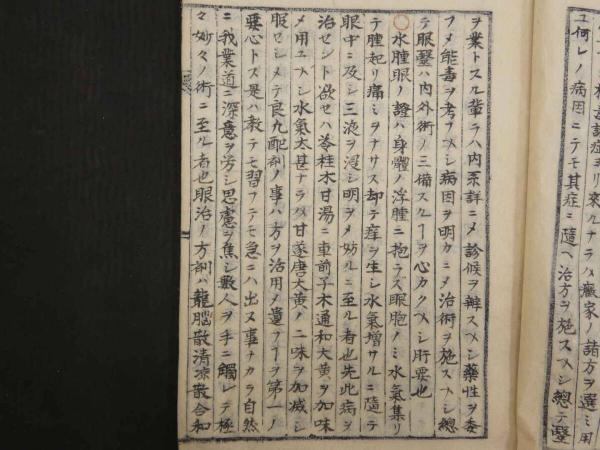 ヨリ來ルナラハ癥家ノ諸方ヲ選ミ用
ユ何レノ病因ニテモ其症ニ隨ヘ治方ヲ施スヘシ總テ醫
ヲ業トスル輩ラハ内系詳ニメ診候ヲ辨スヘシ藥性ヲ委
フメ能毒ヲ考フヘシ病因ヲ明カニメ治術ヲ施スヘシ總
テ眼醫ハ内外術ノ三備スルヿヲ心カクヘシ肝要也
○水腫眼ノ證ハ身體ノ浮腫ニ抱ラズ眼胞ノミ水氣集リ
テ腫起リ痛ミヲナサス却テ痒ヲ生シ水氣増サルニ隨テ
眼中ニ及シ三液ヲ浸シ明ヲメ妨ルニ至ル者也先此病ヲ
治セント欲セハ苓桂木甘湯ニ車前子木通和大黄ヲ加味
メ用ユヘシ水氣太甚ナラハ甘遂唐大黄ノ二味ヲ加减シ
服セシメテ良九配劑ノ事ハ方ヲ活用メ遣フヿヲ第一ノ
要心トス是ハ教テモ習フテモ急ニハ出ヌ事ナカラ自然
ニ我業道ニ深意ヲ労シ思慮ヲ焦シ數人ヲ手ニ觸レテ極
々妙々ノ術ニ至ル者也眼治ノ方劑ハ龍腦散清凉散合和